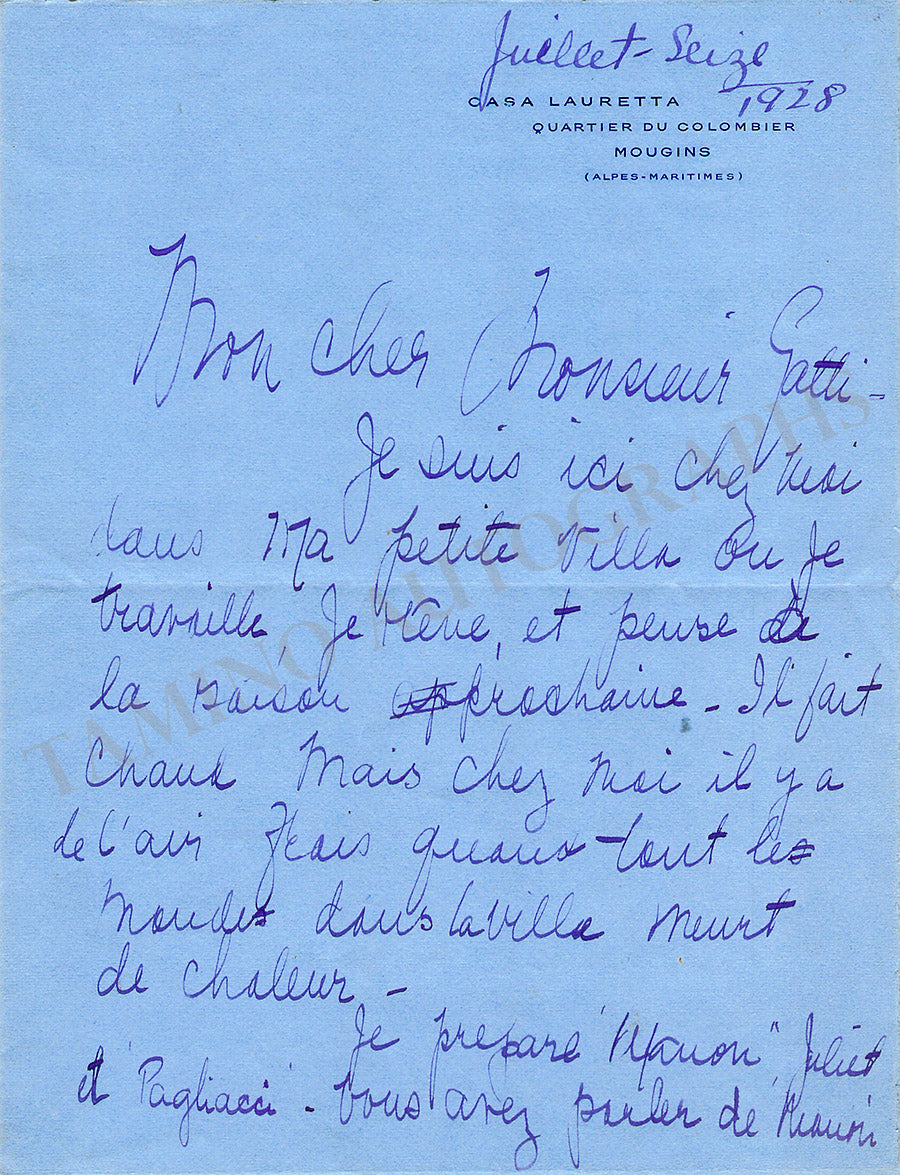 Juillet - Seize
1928
CASA LAURETTA
QUARTIER DU COLOMBIER
MOUGINS
(ALPES-MARITIMES)
Mon cher Monsieur Gatti -
Je suis ici chez moi
dans Ma petite Villa Ou Je
travaille, Je rêve, et pense de
la saison prochaine - Il fait
Chaud Mais chez moi il y a
de l'air frais quand tout le
Monde dans la villa meurt
de chaleur -
Je prepare "Manon" Juliet
et "Pagliacci" - Vous avez parler de Manon
TAMINO AUTOGRAPHS